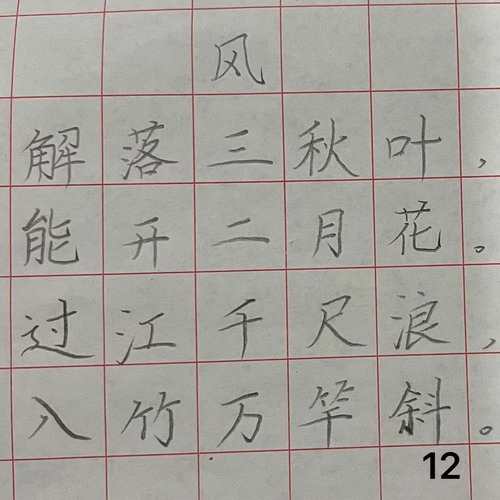 风
解落三秋叶，
能开二月花。
过江千尺浪，
入竹万竿斜。
12